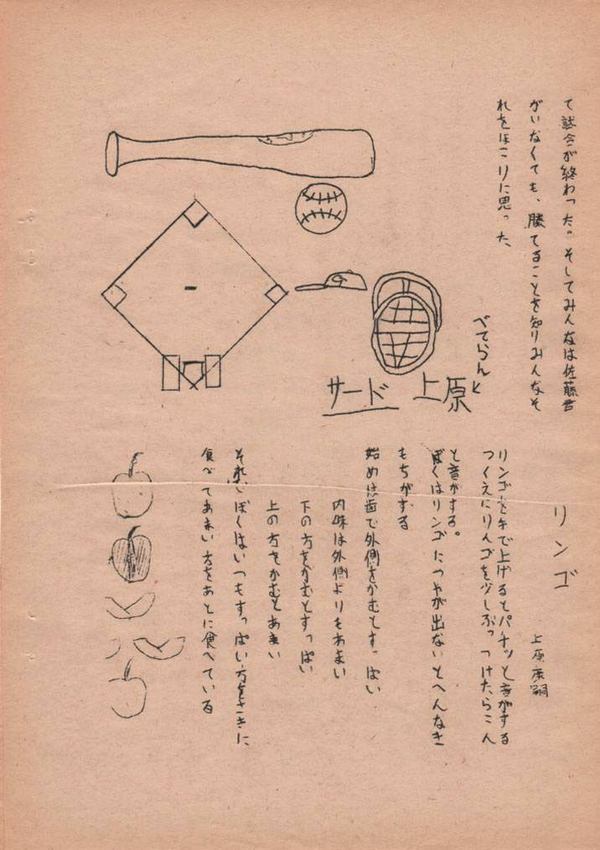 て試合が終わった。そしてみんなは佐藤君
がいなくても、勝てることを知りみんなそ
れをほこりに思った、
べてらんと
サード 上原
リンゴ
上原康嗣
リンゴを手で上げるとパチッと音がする
つくえにリんゴを少しぶっつけたらこん
と音がする。
ぼくはリンゴにつやが出ないとへんなき
もちがする
始めは歯で外側をかむとすっぱい
内味は外側よりもあまい
下の方をかむとすっぱい
上の方をかむとあまい
それでぼくはいつもすっぱい方をさきに
食べてあまい方をあとに食べている